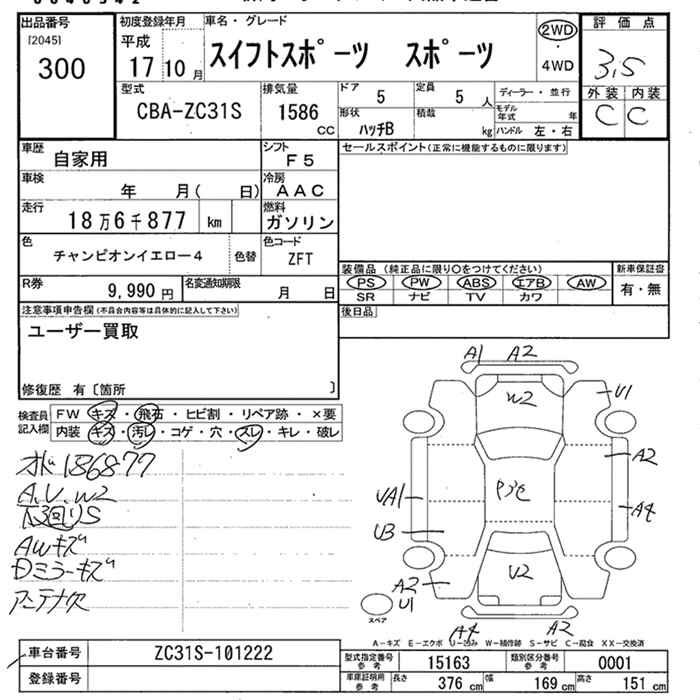 出品番号
[2045]
300
初度登録年月
平成
17 10 月
車名・グレード
スイフトスポーツ スポーツ
2WD
・
4WD
評価点
3.5
外装 内装
C C
型式
CBA-ZC31S
排気量
1586
CC
ドア 5
定員 5 人
形状 ハッチB
積載 kg
ディーラー・並行
モデル年式 年
ハンドル 左・右
車歴 自家用
シフト F5
車検 年 月( 日)
冷房 AAC
走行 18万6千877 km
燃料 ガソリン
色 チャンピオンイエロー4 色替
色コード ZFT
R券 9,990 円
名変通知期限 月 日
セールスポイント(正常に機能するものに限ります)
装備品 (純正品に限り○をつけてください)
新車保証書
PS PW ABS エアB AW
SR ナビ TV カワ
有・無
後日品
注意事項申告欄(不具合内容等は具体的に記入して下さい)
ユーザー買取
修復歴 有〔箇所 〕
検査員記入欄
FW キズ・飛石・ヒビ割・リペア跡・×要
内装 キズ・汚レ・コゲ・穴・スレ・キレ・破レ
186877
A.U.W2
下回りS
AWキズ
Dミラーキズ
アンテナ欠
A1 A2
W2
U1
A2
UA1
A4
U3
U2
A2
U1
スペア
A4
A2
A-キズ E-エクボ U-凹み W-補修跡 S-サビ C-腐食 XX-交換済
車台番号 ZC31S-101222
登録番号
型式指定番号参考 15163
類別区分番号参考 0001
車庫証明用参考
長さ 376 cm
幅 169 cm
高さ 151 cm